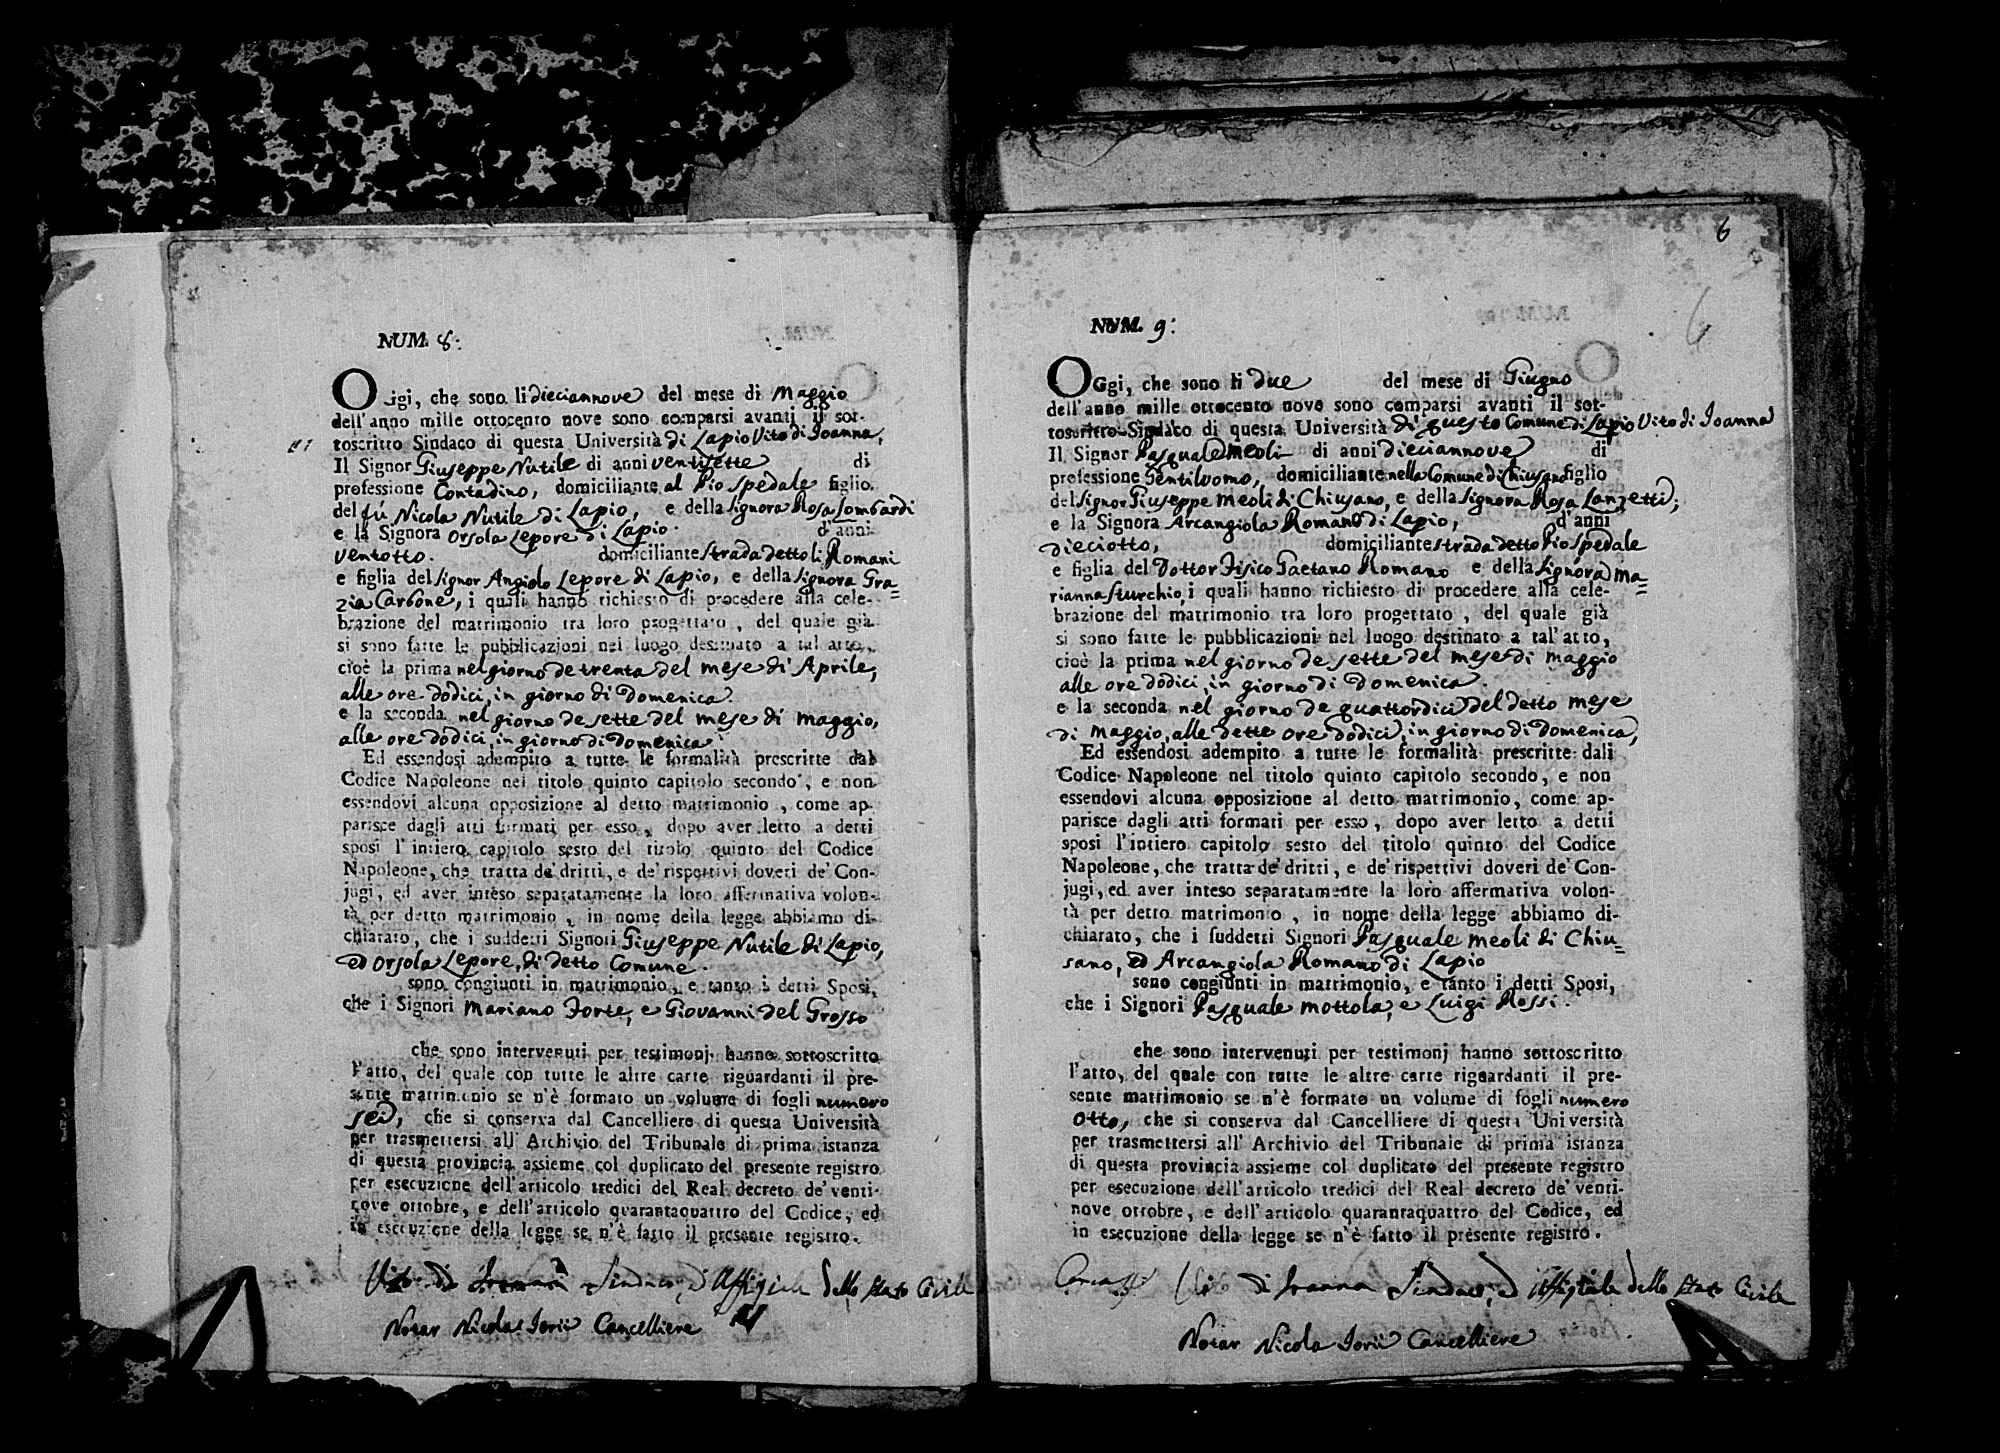 NUM. 8:
Oggi, che sono li dieciannove del mese di Maggio
dell'anno mille ottocento nove sono comparsi avanti il sot-
toscritto Sindaco di questa Università di Lapio Vito di Ioanna,
Il Signor Giuseppe Nutile di anni ventisette di
professione Contadino, domiciliante al Pio Spedale figlio
del fù Nicola Nutile di Lapio, e della signora Rosa Lombardi
e la Signora Orsola Lepore di Lapio. d'anni
ventotto. domiciliante strada detto li Romani
e figlia del signor Angiolo Lepore di Lapio, e della signora Gra=
zia Carbone, i quali hanno richiesto di procedere alla cele-
brazione del matrimonio tra loro progettato, del quale già
si sono fatte le pubblicazioni nel luogo destinato a tal atto,
cioè la prima nel giorno de trenta del mese di Aprile,
alle ore dodici, in giorno di Domenica.
e la seconda nel giorno de sette del mese di Maggio,
alle ore dodici, in giorno di Domenica
Ed essendosi adempito a tutte le formalità prescritte dal
Codice Napoleone nel titolo quinto capitolo secondo, e non
essendovi alcuna opposizione al detto matrimonio, come ap-
parisce dagli atti formati per esso, dopo aver letto a detti
sposi l'intiero capitolo sesto del titolo quinto del Codice
Napoleone, che tratta de' dritti, e de' rispettivi doveri de' Con-
jugi, ed aver inteso separatamente la loro affermativa volon-
tà per detto matrimonio, in nome della legge abbiamo di-
chiarato, che i suddetti Signori Giuseppe Nutile di Lapio,
ed Orsola Lepore, di detto Comune.
sono congiunti in matrimonio, e tanto i detti Sposi,
che i Signori Mariano Forte, e Giovanni del Grosso
che sono intervenuti per testimonj hanno sottoscritto
l'atto, del quale con tutte le altre carte riguardanti il pre-
sente matrimonio se n'è formato un volume di fogli numero
sei, che si conserva dal Cancelliere di questa Università
per trasmettersi all' Archivio del Tribunale di prima istanza
di questa provincia assieme col duplicato del presente registro
per esecuzione dell'articolo tredici del Real decreto de' venti-
nove ottobre, e dell'articolo quarantaquattro del Codice, ed
in esecuzione della legge se n'è fatto il presente registro.
Vito di Ioanna Sindaco, ed Uffiziale dello Stato Civile
Notar Nicola Iorii Cancelliere
6
6
NUM. 9:
Oggi, che sono li due del mese di Giugno
dell'anno mille ottocento nove sono comparsi avanti il sot-
toscritto Sindaco di questa Università di questo Comune di Lapio Vito di Ioanna
Il Signor Pasquale Meoli di anni dieciannove di
professione Gentiluomo, domiciliante nella Comune di Chiusano figlio
del Signor Giuseppe Meoli di Chiusano, e della signora Rosa Lanzetti;
e la Signora Arcangiola Romano di Lapio, d'anni
dieciotto, domiciliante strada detto Pio Spedale
e figlia del Dottor Fisico Gaetano Romano e della signora Ma=
rianna Sturchio, i quali hanno richiesto di procedere alla cele-
brazione del matrimonio tra loro progettato, del quale già
si sono fatte le pubblicazioni nel luogo destinato a tal'atto,
cioè la prima nel giorno de sette del mese di Maggio
alle ore dodici, in giorno di Domenica.
e la seconda nel giorno de quattordici del detto mese
di Maggio, alle dette ore dodici, in giorno di Domenica,
Ed essendosi adempito a tutte le formalità prescritte dali
Codice Napoleone nel titolo quinto capitolo secondo, e non
essendovi alcuna opposizione al detto matrimonio, come ap-
parisce dagli atti formati per esso, dopo aver letto a detti
sposi l'intiero capitolo sesto del titolo quinto del Codice
Napoleone, che tratta de' dritti, e de' rispettivi doveri de' Con-
jugi, ed aver inteso separatamente la loro affermativa volon-
tà per detto matrimonio, in nome della legge abbiamo di-
chiarato, che i suddetti Signori Pasquale Meoli di Chiu=
sano, ed Arcangiola Romano di Lapio
sono congiunti in matrimonio, e tanto i detti Sposi,
che i Signori Pasquale Mottola, e Luigi Rossi.
che sono intervenuti per testimonj hanno sottoscritto
l'atto, del quale con tutte le altre carte riguardanti il pre-
sente matrimonio se n'è formato un volume di fogli numero
otto, che si conserva dal Cancelliere di questa Università
per trasmettersi all' Archivio del Tribunale di prima istanza
di questa provincia assieme col duplicato del presente registro
per esecuzione dell'articolo tredici del Real decreto de' venti-
nove ottobre, e dell'articolo quarantaquattro del Codice, ed
in esecuzione della legge se n'è fatto il presente registro.
Vito di Ioanna Sindaco, ed Uffiziale dello Stato Civile
Notar Nicola Iorii Cancelliere